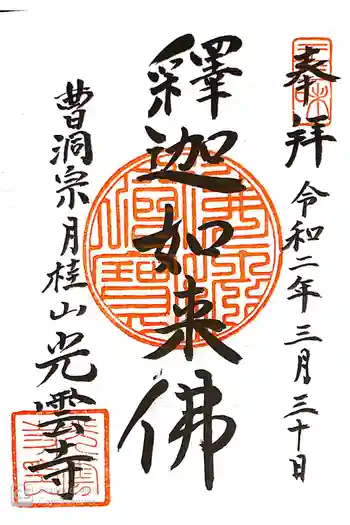 奉拝
令和二年三月三十日
釋迦如来佛
曹洞宗月桂山光雲寺